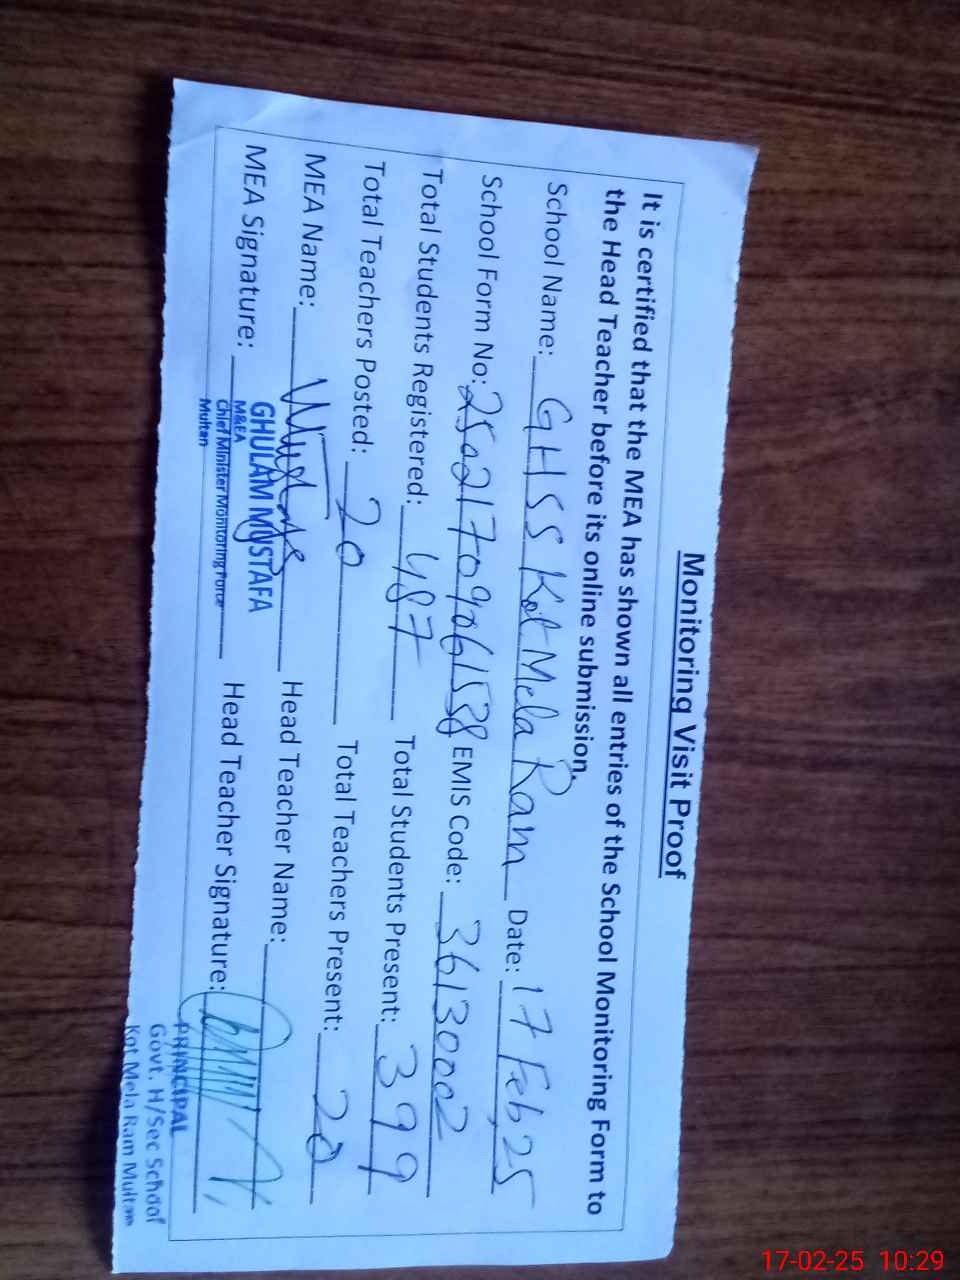 Monitoring Visit Proof
It is certified that the MEA has shown all entries of the School Monitoring Form to
the Head Teacher before its online submission.
School Name: GHSS Kot Mela Ram Date: 17 Feb, 25
School Form No: 25021709061538 EMIS Code: 36130002
Total Students Registered: 487 Total Students Present: 399
Total Teachers Posted: 20 Total Teachers Present: 20
MEA Name: Head Teacher Name:
MEA Signature: Head Teacher Signature:
GHULAM MUSTAFA
M&EA
Chief Minister Monitoring Force
Multan
PRINCIPAL
Govt. H/Sec School
Kot Mela Ram Multan
17-02-25 10:29